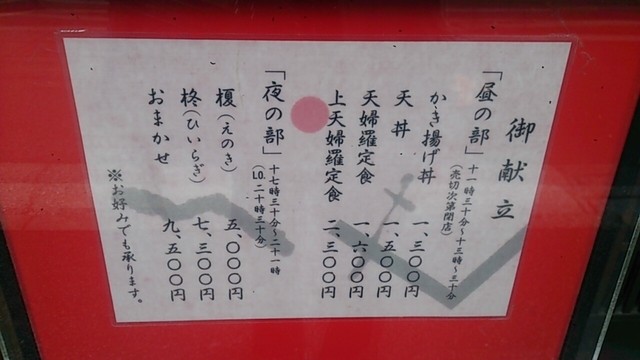 御献立
「昼の部」
十一時三十分～十三時～三十分
(売切次第閉店)
かき揚げ丼 一、三〇〇円
天丼 一、五〇〇円
天婦羅定食 一、六〇〇円
上天婦羅定食 二、三〇〇円
「夜の部」
十七時三十分～二十一時
(LO.二十時三十分)
榎(えのき) 五、〇〇〇円
柊(ひいらぎ) 七、三〇〇円
おまかせ 九、五〇〇円
※お好みでも承ります。